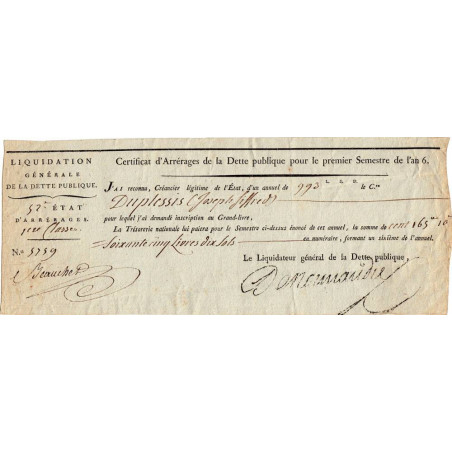 LIQUIDATION
GÉNÉRALE
DE LA DETTE PUBLIQUE.
52e ÉTAT
D'ARRÉRAGES.
1ere Classe
N.o 5759
Beauched
Certificat d'Arrérages de la Dette publique pour le premier Semestre de l'an 6,
J'AI reconnu, Créancier légitime de l'État, d'un annuel de 993 L. S. D. le C.en
Duplessis (Joseph
pour lequel j'ai demandé inscription au Grand-livre,
La Trésorerie nationale lui paiera pour le Semestre ci-dessus énoncé de cet annuel, la somme de cent 165 10
Soixante cinq Livres dix Sols en numéraire, formant un sixième de l'annuel.
Le Liquidateur général de la Dette publique,
Denormandie